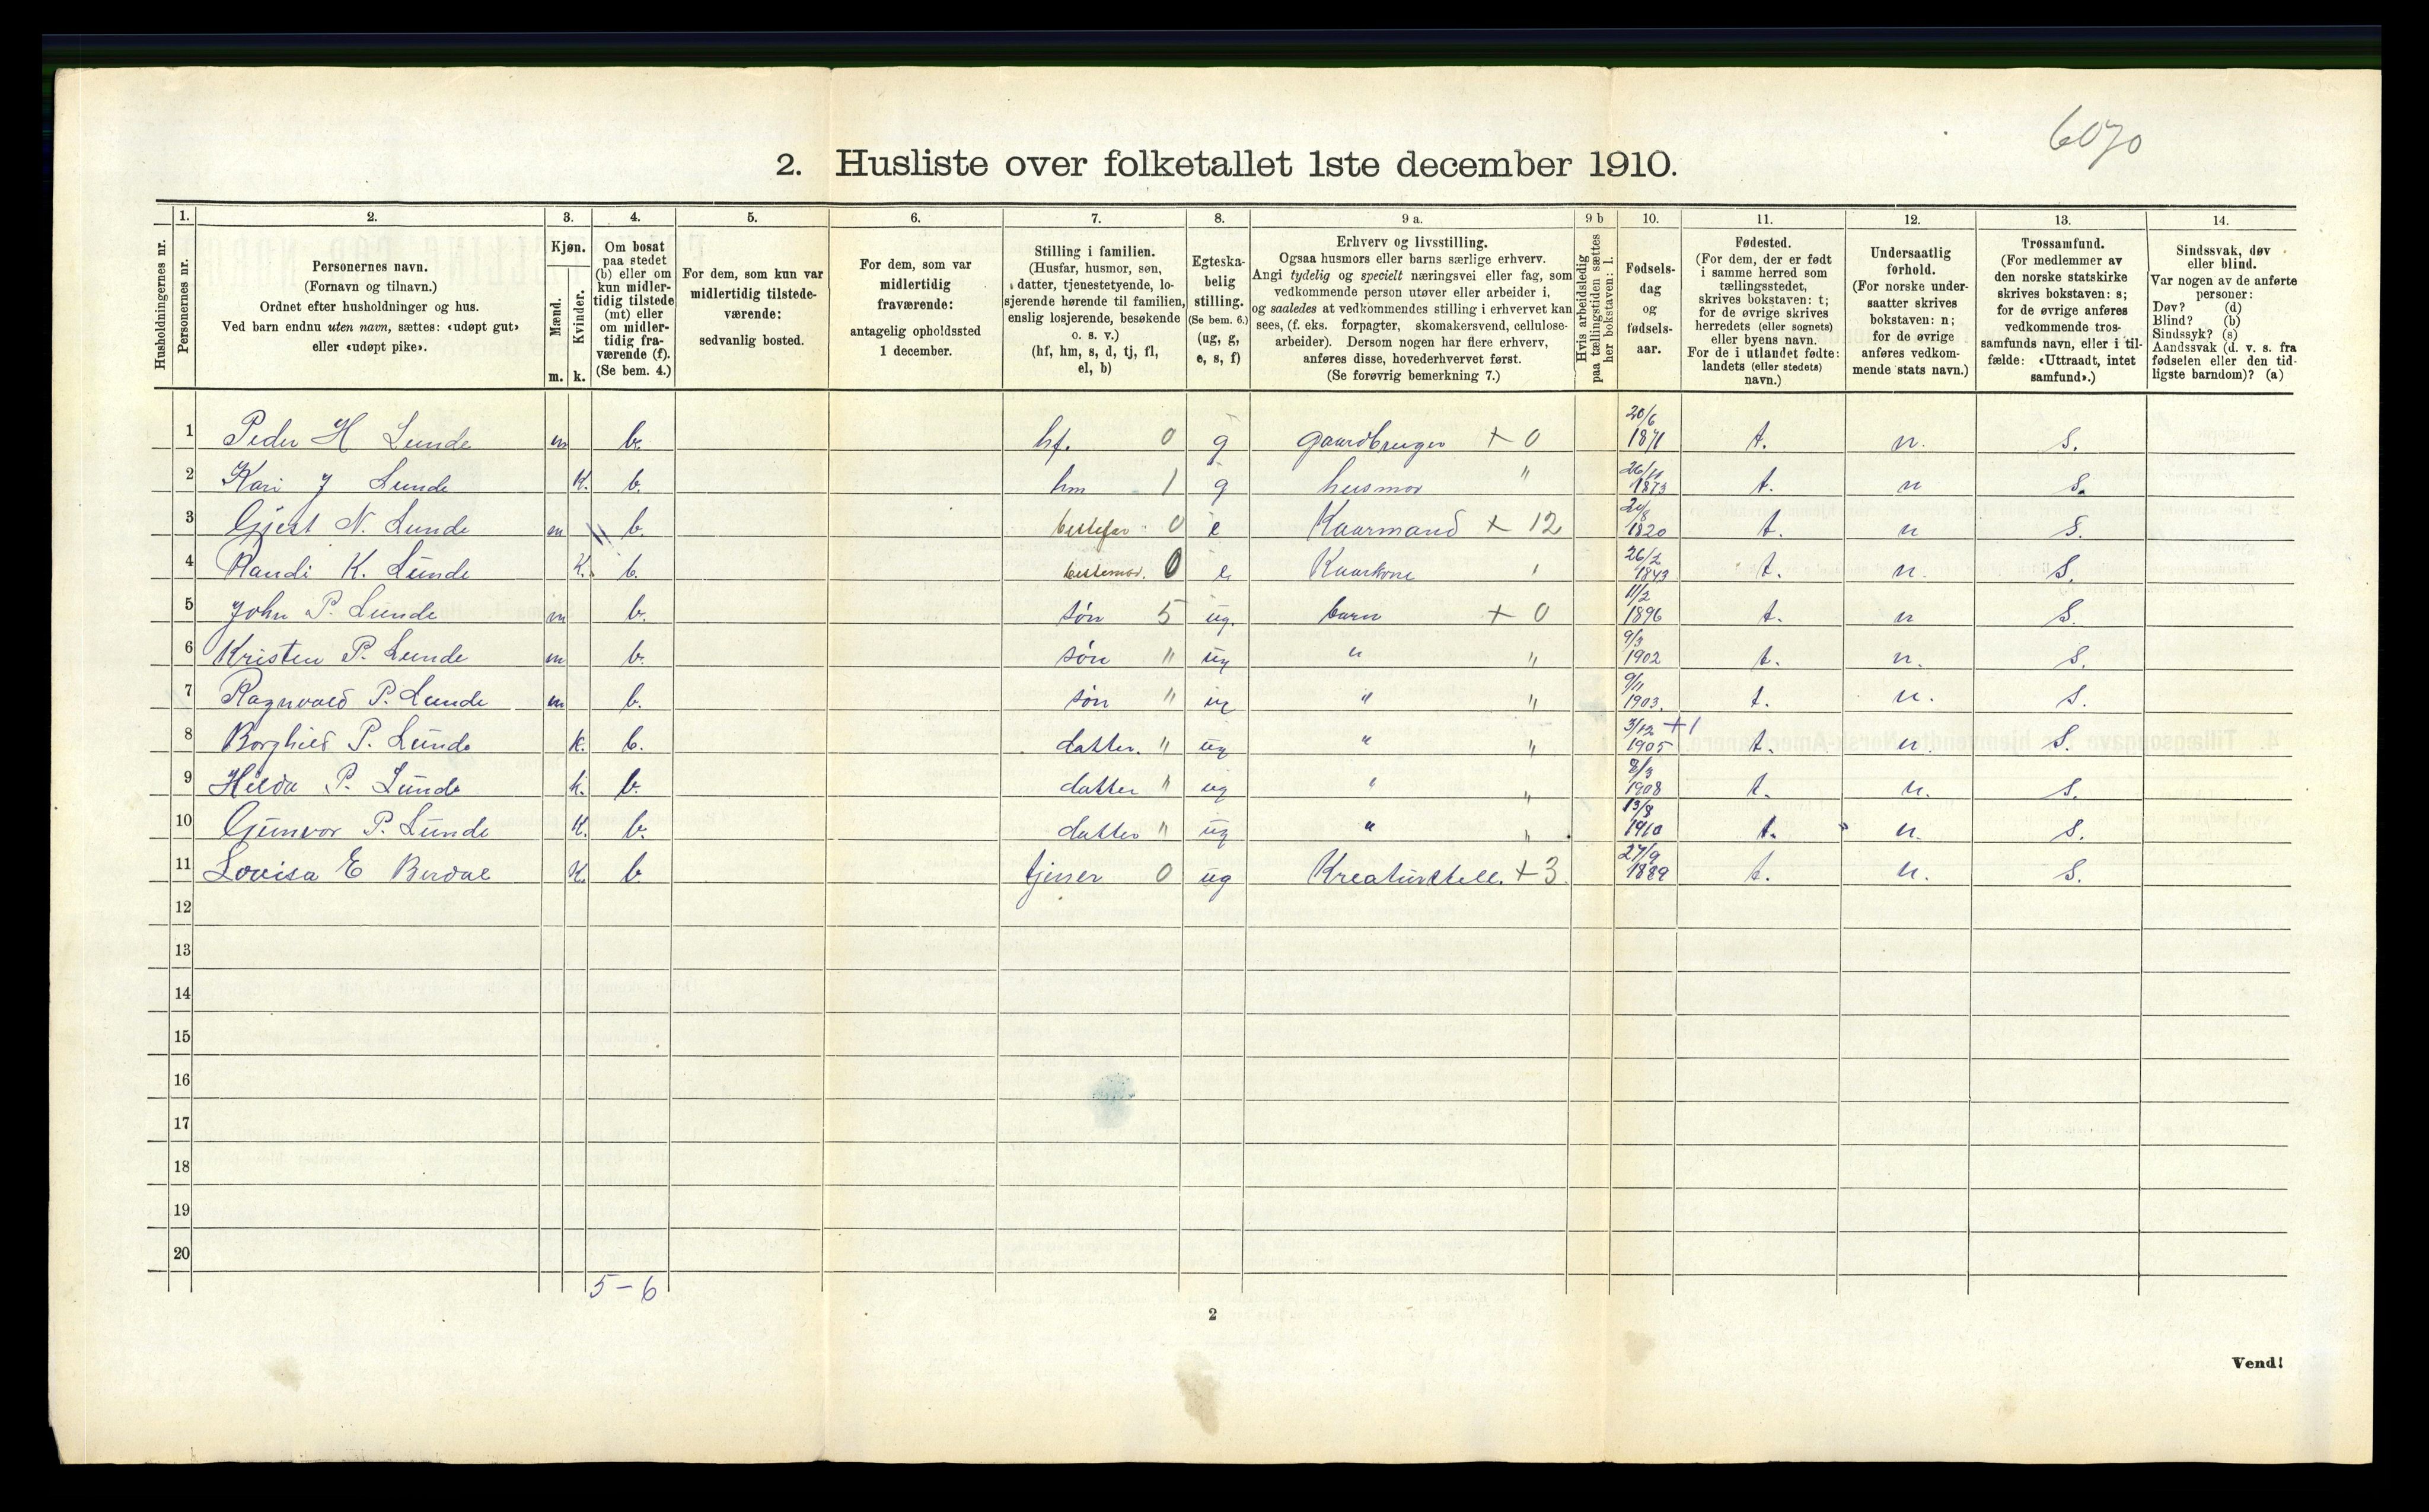 6070
2. Husliste over folketallet 1ste december 1910.
Husholdningernes nr.
1. Personernes nr.
2. Personernes navn.
(Fornavn og tilnavn.)
Ordnet efter husholdninger og hus.
Ved barn endnu uten navn, sættes: «udøpt gut»
eller «udøpt pike».
3. Kjøn.
Mænd. m.
Kvinder. k.
4. Om bosat
paa stedet
(b) eller om
kun midler-
tidig tilstede
(mt) eller
om midler-
tidig fra-
værende (f).
(Se bem. 4.)
5. For dem, som kun var
midlertidig tilstede-
værende:
sedvanlig bosted.
6. For dem, som var
midlertidig
fraværende:
antagelig opholdssted
1 december.
7. Stilling i familien.
(Husfar, husmor, søn,
datter, tjenestetyende, lo-
sjerende hørende til familien,
enslig losjerende, besøkende
o. s. v.)
(hf, hm, s, d, tj, fl,
el, b)
8. Egteska-
belig
stilling.
(Se bem. 6.)
(ug, g,
e, s, f)
9 a. Erhverv og livsstilling.
Ogsaa husmors eller barns særlige erhverv.
Angi tydelig og specielt næringsvei eller fag, som
vedkommende person utøver eller arbeider i,
og saaledes at vedkommendes stilling i erhvervet kan
sees, (f. eks. forpagter, skomakersvend, cellulose-
arbeider). Dersom nogen har flere erhverv,
anføres disse, hovederhvervet først.
(Se forøvrig bemerkning 7.)
9 b Hvis arbeidsledig
paa tællingstiden sættes
her bokstaven: l.
10. Fødsels-
dag
og
fødsels-
aar.
11. Fødested.
(For dem, der er født
i samme herred som
tællingsstedet,
skrives bokstaven: t;
for de øvrige skrives
herredets (eller sognets)
eller byens navn.
For de i utlandet fødte:
landets (eller stedets)
navn.)
12. Undersaatlig
forhold.
(For norske under-
saatter skrives
bokstaven: n;
for de øvrige
anføres vedkom-
mende stats navn.)
13. Trossamfund.
(For medlemmer av
den norske statskirke
skrives bokstaven: s;
for de øvrige anføres
vedkommende tros-
samfunds navn, eller i til-
fælde: «Uttraadt, intet
samfund».)
14. Sindssvak, døv
eller blind.
Var nogen av de anførte
personer:
Døv? (d)
Blind? (b)
Sindssyk? (s)
Aandssvak (d. v. s. fra
fødselen eller den tid-
ligste barndom)? (a)
1 Peder H Lunde m b. hf. 0 g gaardbruger + 0 20/6 1871 t. n. S.
2 Kari J Lunde K. b. hm 1 g husmor " 26/11 1873 t. n S.
3 Gjest N. Lunde m b. bestefar 0 e Kaarmand + 12 1820 t. n S.
4 Randi K. Lunde K. b. bestemor. 0 e Kaarkone 26/2 1843 t. n. S.
5 John P. Lunde m b. søn 5 ug. barn + 0 11/2 1896 t. n S.
6 Kristen P. Lunde m b. søn " ug " " 9/3 1902 t. n. S.
7 Ragnvald P. Lunde m b. søn " ug " " 9/11 1903. t. n. S.
8 Borghild P. Lunde K. b. datter. " ug " " 3/12 +1 1905 t. n. S.
9 Hilda P. Lunde K. b. datter " ug " " 8/3 1908 t. n. S.
10 Gunvor P. Lunde K. b. datter " ug " " 13/8 1910 t. n. S.
11 Lovisa E Berdal K. b tjener 0 ug Kreaturstell. + 3. 27/9 1889 t. n. S.
12
13
14
15
16
17
18
19
20
5 – 6
2
Vend!